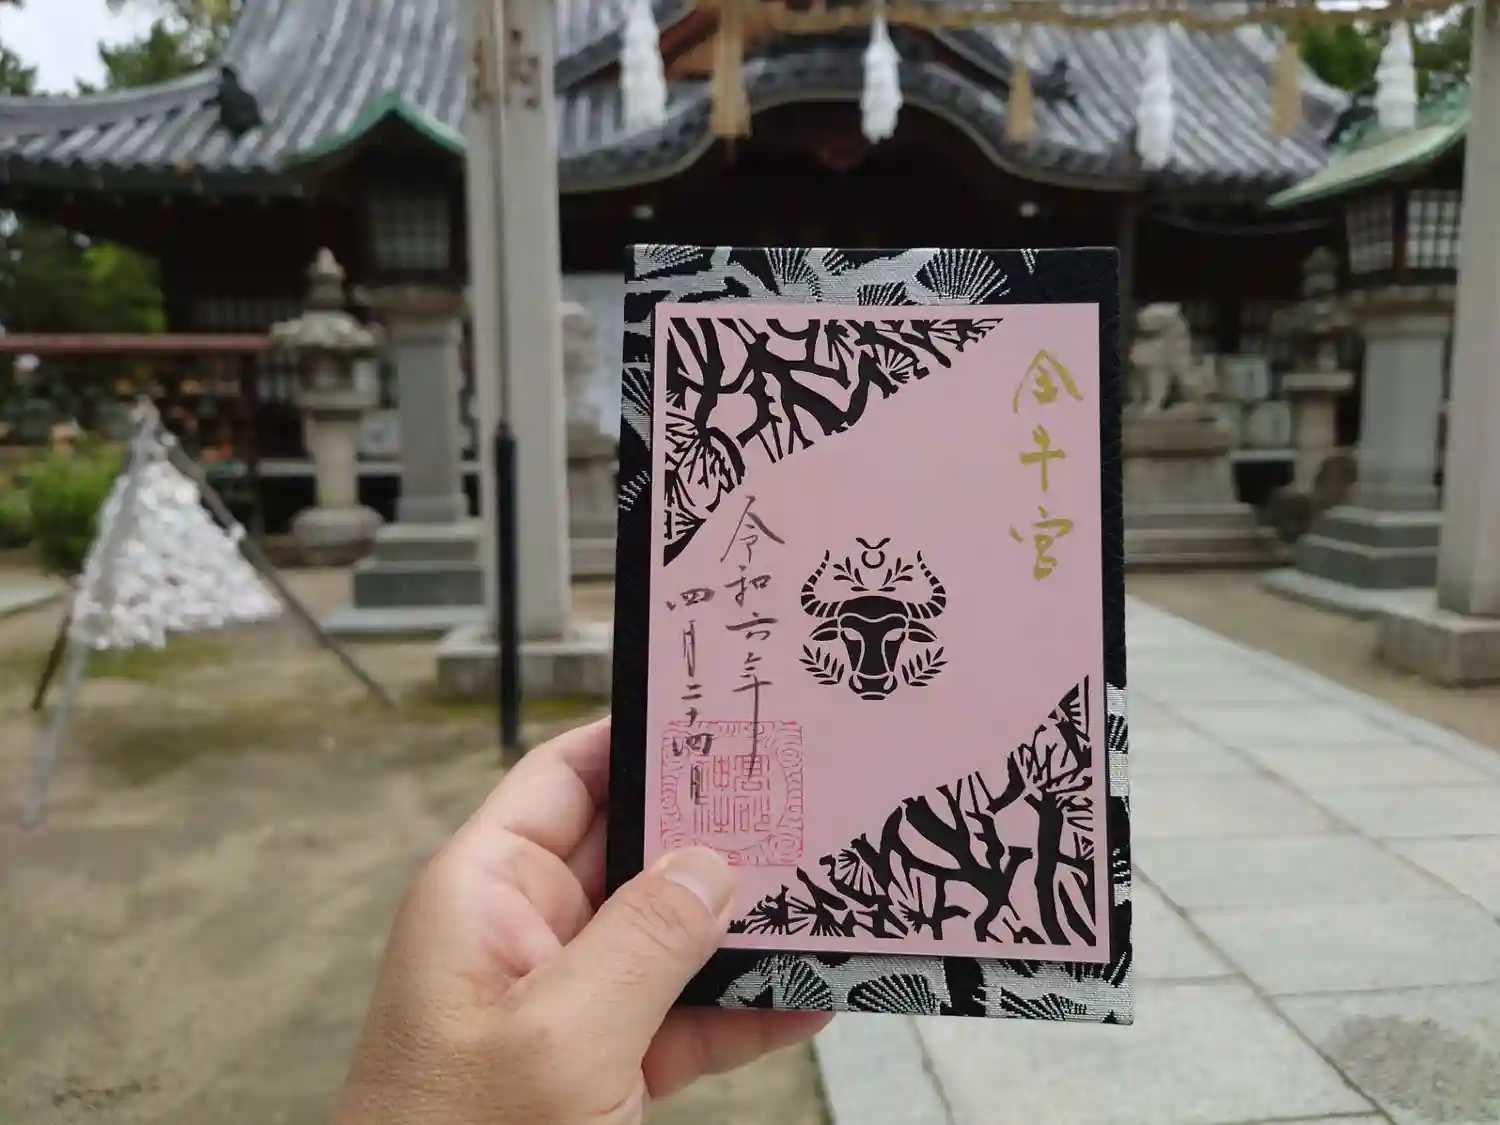 金牛宮
令和六年
四月二十四日
高砂
神社